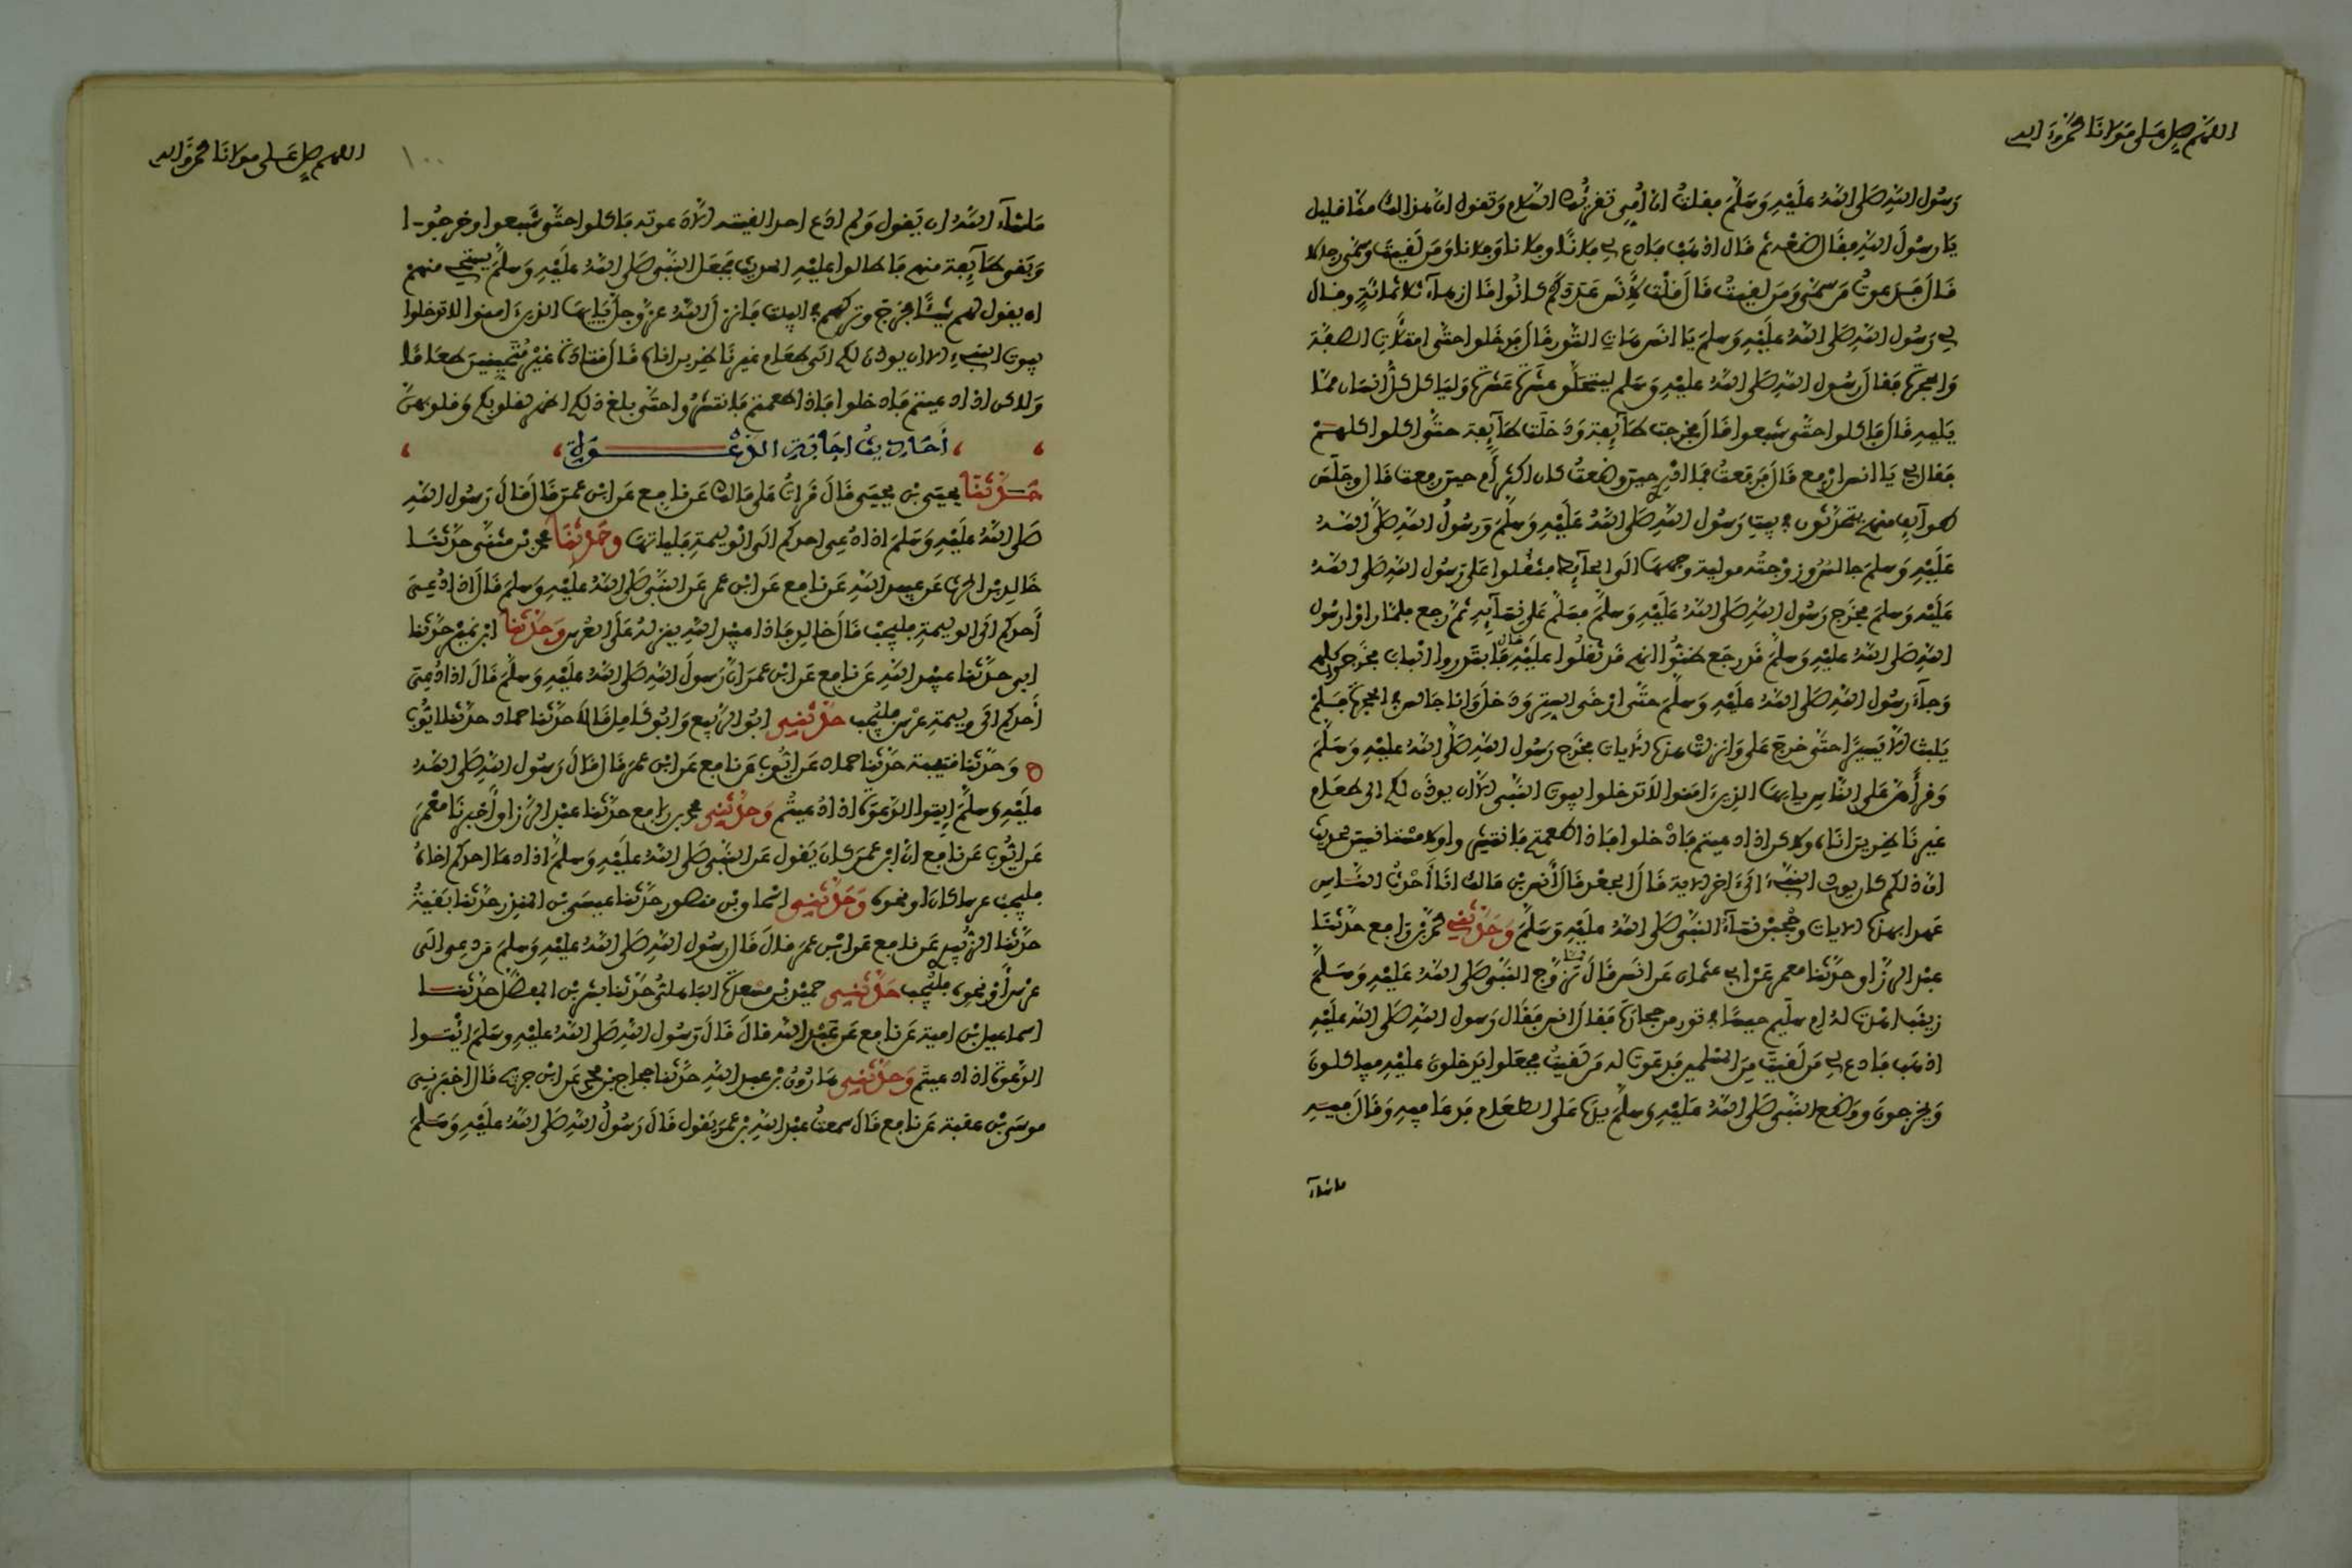 اللهم صل على مولانا محمد واله
رسول الله صلى الله عليه وسلم فقلت ان امي تقرئك السلام وتقول ان هذا لك منا قليل
يا رسول الله فقال ضعه ثم قال اذهب فادع لي فلانا وفلانا وفلانا ومن لقيت وسمى رجالا
قال فدعوت من سمى ومن لقيت قال قلت لانس عدد كم كانوا قال زهاء ثلاثمائة وقال
لي رسول الله صلى الله عليه وسلم يا انس هات التور قال فدخلوا حتى امتلات الصفة
والحجرة فقال رسول الله صلى الله عليه وسلم ليتحلق عشرة عشرة ولياكل كل انسان مما
يليه قال فاكلوا حتى شبعوا قال فخرجت طائفة ودخلت طائفة حتى اكلوا كلهم
فقال لي يا انس ارفع قال فرفعت فما ادري حين وضعت كان اكثر ام حين رفعت قال وجلس
طوائف منهم يتحدثون في بيت رسول الله صلى الله عليه وسلم ورسول الله صلى الله
عليه وسلم جالس وزوجته مولية وجهها الى الحائط فثقلوا على رسول الله صلى الله
عليه وسلم فخرج رسول الله صلى الله عليه وسلم فسلم على نسائه ثم رجع فلما راوا رسول
الله صلى الله عليه وسلم قد رجع ظنوا انهم قد ثقلوا عليه قال فابتدروا الباب فخرجوا كلهم
وجاء رسول الله صلى الله عليه وسلم حتى ارخى الستر ودخل وانا جالس في الحجرة فلم
يلبث الا يسيرا حتى خرج علي وانزلت هذه الايات فخرج رسول الله صلى الله عليه وسلم
وقراهن على الناس يايها الذين امنوا لا تدخلوا بيوت النبي الا ان يوذن لكم الى طعام
غير ناظرين اناه ولاكن اذا دعيتم فادخلوا فاذا طعمتم فانتشروا ولا مستانسين لحديث
ان ذلكم كان يوذي النبيء الى اخر الاية قال الجعد قال انس بن مالك انا احدث الناس
عهدا بهذه الايات وحجبن نساء النبي صلى الله عليه وسلم وحدثني محمد بن رافع حدثنا
عبد الرزاق حدثنا معمر عن ابي عثمان عن انس قال لما تزوج النبي صلى الله عليه وسلم
زينب اهدت له ام سليم حيسا في تور من حجارة فقال انس فقال رسول الله صلى الله عليه
اذهب فادع لي من لقيت من المسلمين فدعوت له من لقيت فجعلوا يدخلون عليه فياكلون
ويخرجون ووضع النبي صلى الله عليه وسلم يده على الطعام فدعا فيه وقال فيه
ماشاء
اللهم صل على مولانا محمد واله
١٠٠
ماشاء الله ان يقول ولم ادع احدا لقيته الا دعوته فاكلوا حتى شبعوا وخرجوا
وبقي طائفة منهم فاطالوا عليه الحديث فجعل النبي صلى الله عليه وسلم يستحي منهم
ان يقول لهم شيئا فخرج وتركهم في البيت فانزل الله عز وجل يايها الذين امنوا لا تدخلوا
بيوت النبيء الا ان يوذن لكم الى طعام غير ناظرين اناه قال قتادة غير متحينين طعاما
ولاكن اذا دعيتم فادخلوا فاذا طعمتم فانتشروا حتى بلغ ذلكم اطهر لقلوبكم وقلوبهن
احاديث اجابة الدعوة
حدثنا يحيى بن يحيى قال قرات على مالك عن نافع عن ابن عمر قال قال رسول الله
صلى الله عليه وسلم اذا دعي احدكم الى الوليمة فلياتها وحدثنا محمد بن مثنى حدثنا
خالد بن الحرث عن عبيد الله عن نافع عن ابن عمر عن النبي صلى الله عليه وسلم قال اذا دعي
احدكم الى الوليمة فليجب قال خالد فاذا عبيد الله ينزله على العرس وحدثنا ابن نمير حدثنا
ابي حدثنا عبيد الله عن نافع عن ابن عمر ان رسول الله صلى الله عليه وسلم قال اذا دعي
احدكم الى وليمة عرس فليجب حدثني ابو الربيع وابو كامل قالا حدثنا حماد حدثنا ايوب
ح وحدثنا قتيبة حدثنا حماد عن ايوب عن نافع عن ابن عمر قال قال رسول الله صلى الله
عليه وسلم ايتوا الدعوة اذا دعيتم وحدثني محمد بن رافع حدثنا عبد الرزاق اخبرنا معمر
عن ايوب عن نافع ان ابن عمر كان يقول عن النبي صلى الله عليه وسلم اذا دعا احدكم اخاه
فليجب عرسا كان او نحوه وحدثني اسحاق بن منصور حدثنا عيسى بن المنذر حدثنا بقية
حدثنا الزبيدي عن نافع عن ابن عمر قال قال رسول الله صلى الله عليه وسلم من دعي الى
عرس او نحوه فليجب حدثني حميد بن مسعدة الباهلي حدثنا بشر بن المفضل حدثنا
اسماعيل بن امية عن نافع عن عبد الله قال قال رسول الله صلى الله عليه وسلم ائتوا
الدعوة اذا دعيتم وحدثني هارون بن عبد الله حدثنا حجاج بن محمد عن ابن جريج قال اخبرني
موسى بن عقبة عن نافع قال سمعت عبد الله بن عمر يقول قال رسول الله صلى الله عليه وسلم